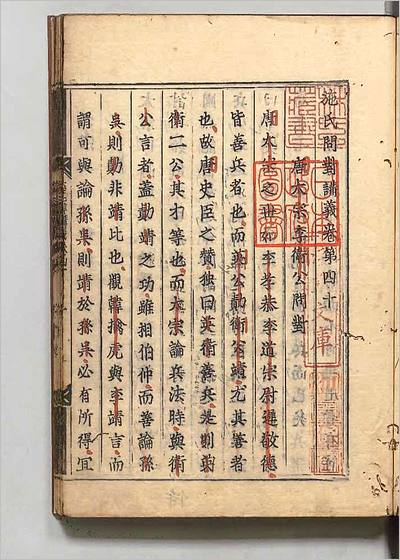 施氏問對講義卷第四十
唐太宗李衛公問對
唐太宗之世如李孝恭李道宗尉遲敬德
皆善兵者也而英公勣衛公靖尤其善者
也故唐史臣之贊獨曰英衛善兵是則英
衛二公其才等也而太宗論兵法時與衛
公言者蓋勣靖之功雖相伯仲而善論孫
吳則勣非靖比也觀韓擒虎與李靖言而
謂可與論孫吳則靖於孫吳必有所得宜